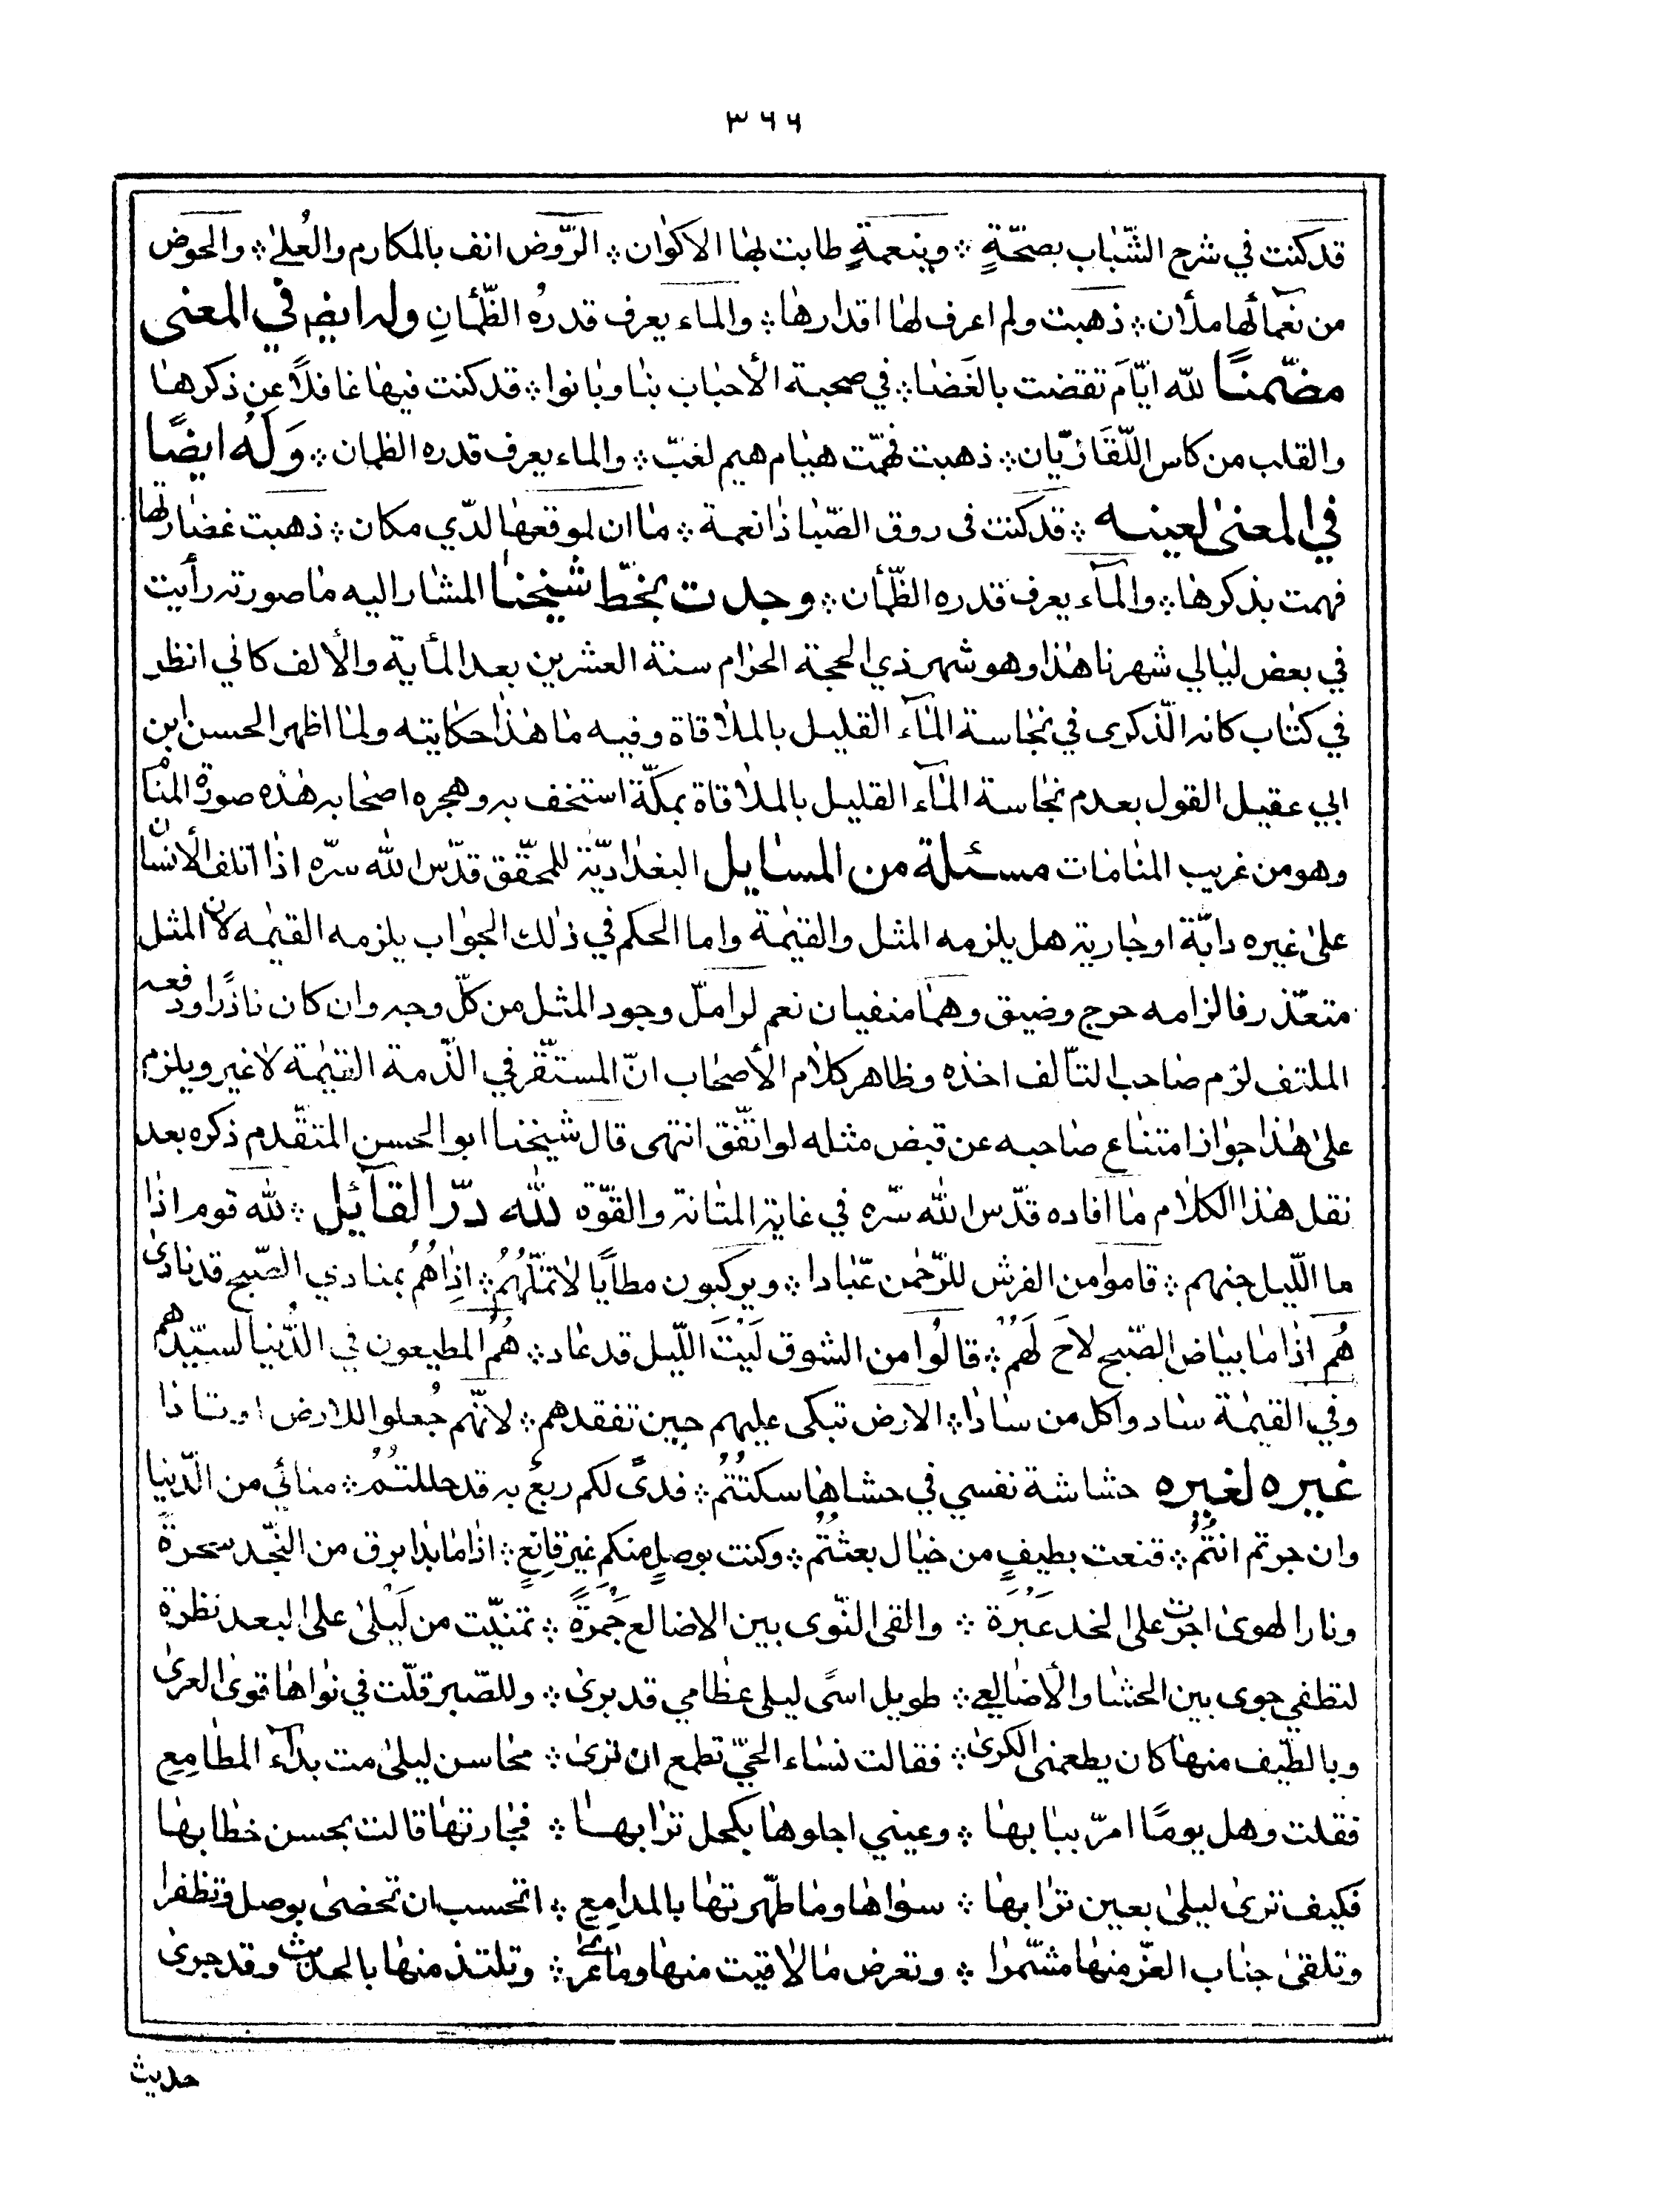 ٣٦٦
قد كنت في شرح الشّباب بصحّةٍ ❊ وبنعمةٍ طابت لها الاكوان ❊ الرّوض انف بالمكارم والعُلىٰ ❊ والحوض
من نعمائها ملأن ❊ ذهبت ولم اعرف لها اقدارها ❊ والماء يعرف قدرُه الظّمأنِ وله ايضه في المعنى
مضمّنًا للّه ايّام تقضت بالغَضا ❊ في صحبة الأحباب بنا وبانوا ❊ قد كنت فيها غافلاً عن ذكرها
والقلب من كاس اللّقا ريّان ❊ ذهبت فهمّت هيام هيم لغبّ ❊ والماء يعرف قدره الظمان ❊ وَلَهُ ايضًا
في المعنىٰ لعينه ❊ قد كنت فى روق الصّبا ذا نعمة ❊ ما ان لموقعها لدّي مكان ❊ ذهبت غضارتها
فهمت بذكرها ❊ والمآء يعرف قدره الظّمأن ❊ وجدت بخطّ شيخنا المشار اليه ما صورته رأيت
في بعض ليالي شهرنا هذا وهو شهر ذي الحجة الحرام سنة العشرين بعد المأية والألف كاني انظر
في كتاب كانه الذّكرى في نجاسة المآء القليل بالملاقاة وفيه ما هذا حكايته ولما اظهر الحسن ابن
ابي عقيل القول بعدم نجاسة المآء القليل بالملاقاة بمكّة استخف به وهجره اصحابه هذه صورة المنام
وهو من غريب المنامات مسئلة من المسايل البغداديّة للمحقّق قدّس اللّه سرّه اذا اتلف الأنسان
علىٰ غيره دابّة او جارية هل يلزمه المثل والقيمة واما الحكم في ذلك الجواب يلزمه القيمه لان المثل
متعذّر فالزامه حرج وضيق وهما منفيان نعم لو امل وجود المثل من كلّ وجه وان كان ناذرا ودفعه
الملتف لزم صاحب التآلف اخذه وظاهر كلام الأصحاب انّ المستقّر في الذّمة القيمة لا غير ويلزم
علىٰ هذا جواز امتناع صاحبه عن قبض مثله لو اتّفق انتهى قال شيخنا ابو الحسن المتقّدم ذكره بعد
نقل هذا الكلام ما افاده قدّس اللّه سرّه في غاية المتانة والقوّة للّه درّ القآئل ❊ للّه قوم اذا
ما اللّيل جنهم ❊ قاموا من الفرش للرّحمن عبّادا ❊ ويركبون مطايًا لا تملّهُمُ ❊ اِذا هُمُ بمنادي الصّبح قد نادىٰ
هُم اذا ما بياض الصّبح لاحَ لَهُمْ ❊ قالُوا من الشوق لَيْتَ اللّيل قد عاد ❊ هُمُ المطيعون في الدُّنيا لسيّدهم
وفي القيمة ساد واكل من سادا ❊ الارض تبكى عليهم حين تفقدهم ❊ لانّهم جُعلوا للارض اوتادا
غيره لغيره حشاشة نفسي في حشاها سكنتُمُ ❊ فدىً لكم ربعٌ به قد حللتُمُ ❊ منائي من الدّنيا
وان جرتم انتُمُ ❊ قنعت بطيفٍ من خيال بعثتُمُ ❊ وكنت بوصلٍ منكم غير قانِعٍ ❊ اذا ما بدا برق من النّجد سحرةً
ونار الهوىٰ اجرت على الخد عَبْرَة ❊ والقى النّوى بين الاضالع جَمرَةً ❊ تمنيّت من لَيْلىٰ على البعد نظرة
لتطفي جوى بين الحشا والأضالِع ❊ طويل اسىً ليلى عظامي قد برىٰ ❊ وللصّبر قلّت في نواها قوىٰ العرىٰ
وبالطّيف منها كان يطعمنى الكرىٰ ❊ فقالت نساء الحيّ تطمع ان ترىٰ ❊ محاسن ليلىٰ مت بدآء المطامِع
فقلت وهل يومًا امرّ ببابها ❊ وعيني اجلوها بكحل ترابها ❊ فجارتها قالت بحسن خطابها
فكيف ترىٰ ليلىٰ بعين ترابها ❊ سواها وما طهّرتها بالمدامِعِ ❊ اتحسب ان تحضىٰ بوصل وتظفرا
وتلقىٰ جناب العزّ منها مشّمرا ❊ وتعرض ما لاقيت منها وما عرىٰ ❊ وتلتذ منها بالحديث وقد جرىٰ
حديث